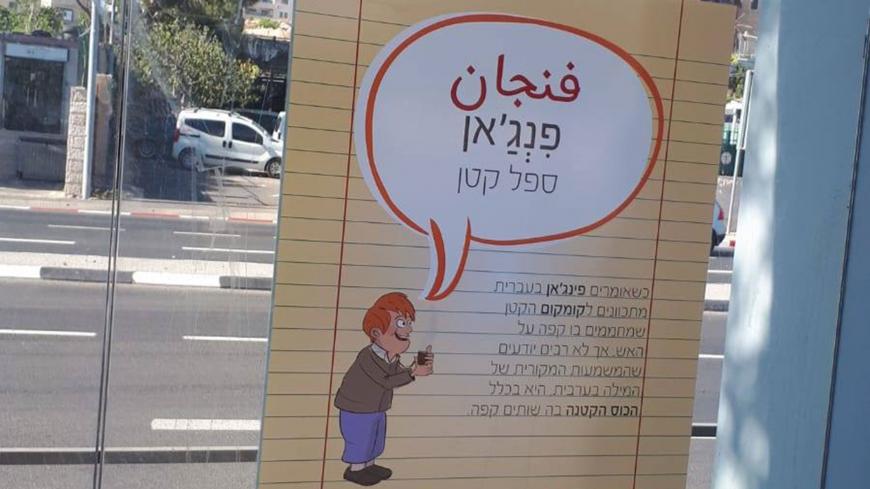 فنجان
פִנְגַ'אן
ספל קטן
כשאומרים פינג'אן בעברית
מתכוונים לקומקום הקטן
שמחממים בו קפה על
האש. אך לא רבים יודעים
שהמשמעות המקורית של
המילה בערבית, היא בכלל
הכוס הקטנה בה שותים קפה.